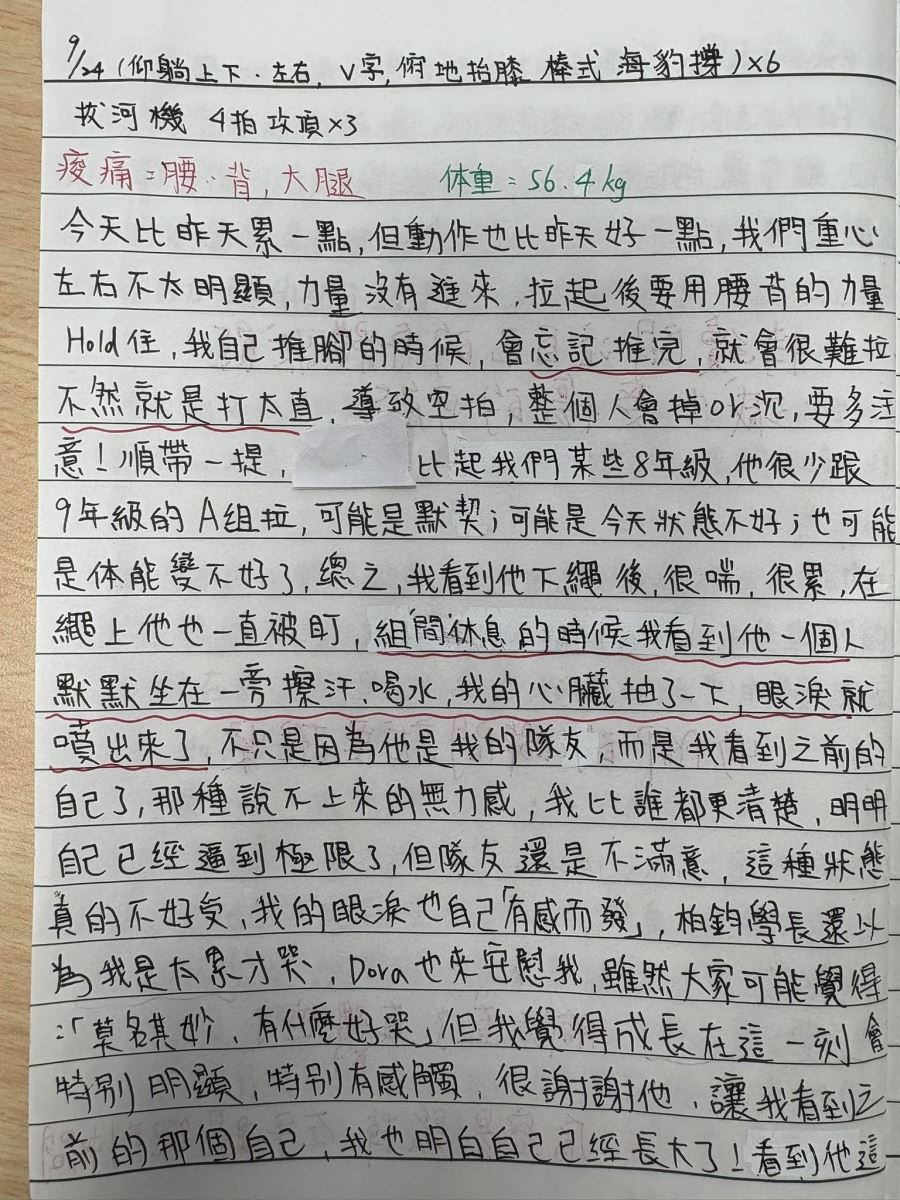 9/24 (仰躺上下、左右, V字, 俯地抬膝 棒式 海豹撐)×6
拔河機 4拍攻頂×3
痠痛:腰、背,大腿 体重:56.4kg
今天比昨天累一點,但動作也比昨天好一點,我們重心
左右不太明顯,力量沒有進來,拉起後要用腰背的力量
Hold住,我自己推腳的時候,會忘記推完,就會很難拉
不然就是打太直,導致空拍,整個人會掉or沉,要多注
意!順帶一提, 比起我們某些8年級,他很少跟
9年級的A組拉,可能是默契;可能是今天狀態不好;也可能
是体能變不好了,總之,我看到他下繩後,很喘,很累,在
繩上他也一直被盯,組間休息的時候我看到他一個人
默默坐在一旁擦汗、喝水,我的心臟抽了一下,眼淚就
噴出來了,不只是因為他是我的隊友,而是我看到之前的
自己了,那種說不上來的無力感,我比誰都更清楚,明明
自己已經逼到極限了,但隊友還是不滿意,這種狀態
真的不好受,我的眼淚也自己「有感而發」,柏鈞學長還以
為我是太累才哭,Dora也來安慰我,雖然大家可能覺得
:「莫名其妙、有什麼好哭」但我覺得成長在這一刻會
特別明顯,特別有感觸,很謝謝他,讓我看到之
前的那個自己,我也明白自己已經長大了!看到他這